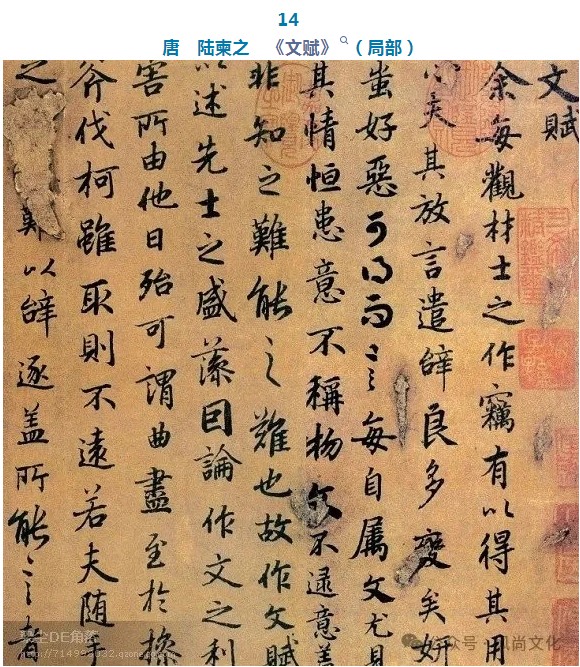 14
唐 陆柬之 《文赋》(局部)
文賦
余每觀材士之作竊有以得其用
心夫其放言遣辭良多變矣妍
蚩好惡可得而言每自属文尤見
其情恒患意不稱物文不逮意盖
非知之難能之難也故作文賦
以述先士之盛藻因論作文之利
害所由他日殆可謂曲盡至於操
斧伐柯雖取則不遠若夫随
之難以辭逐盖所能言者
公众号·风尚文化